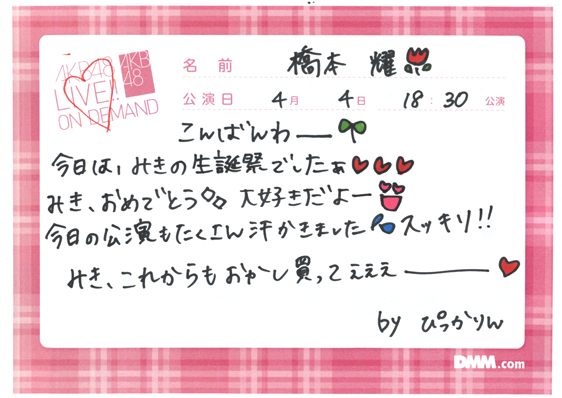 AKB48
LIVE!!
ON DEMAND
AKB
48
名前 橋本 耀
公演日 4月 4日 18:30 公演
こんばんわー
今日は、みきの生誕祭でしたぁ
みき、おめでとう 大好きだよー
今日の公演もたくさん汗かきました スッキリ!!
みき、これからもおかし買ってぇぇぇー
by ぴっかりん
DMM.com